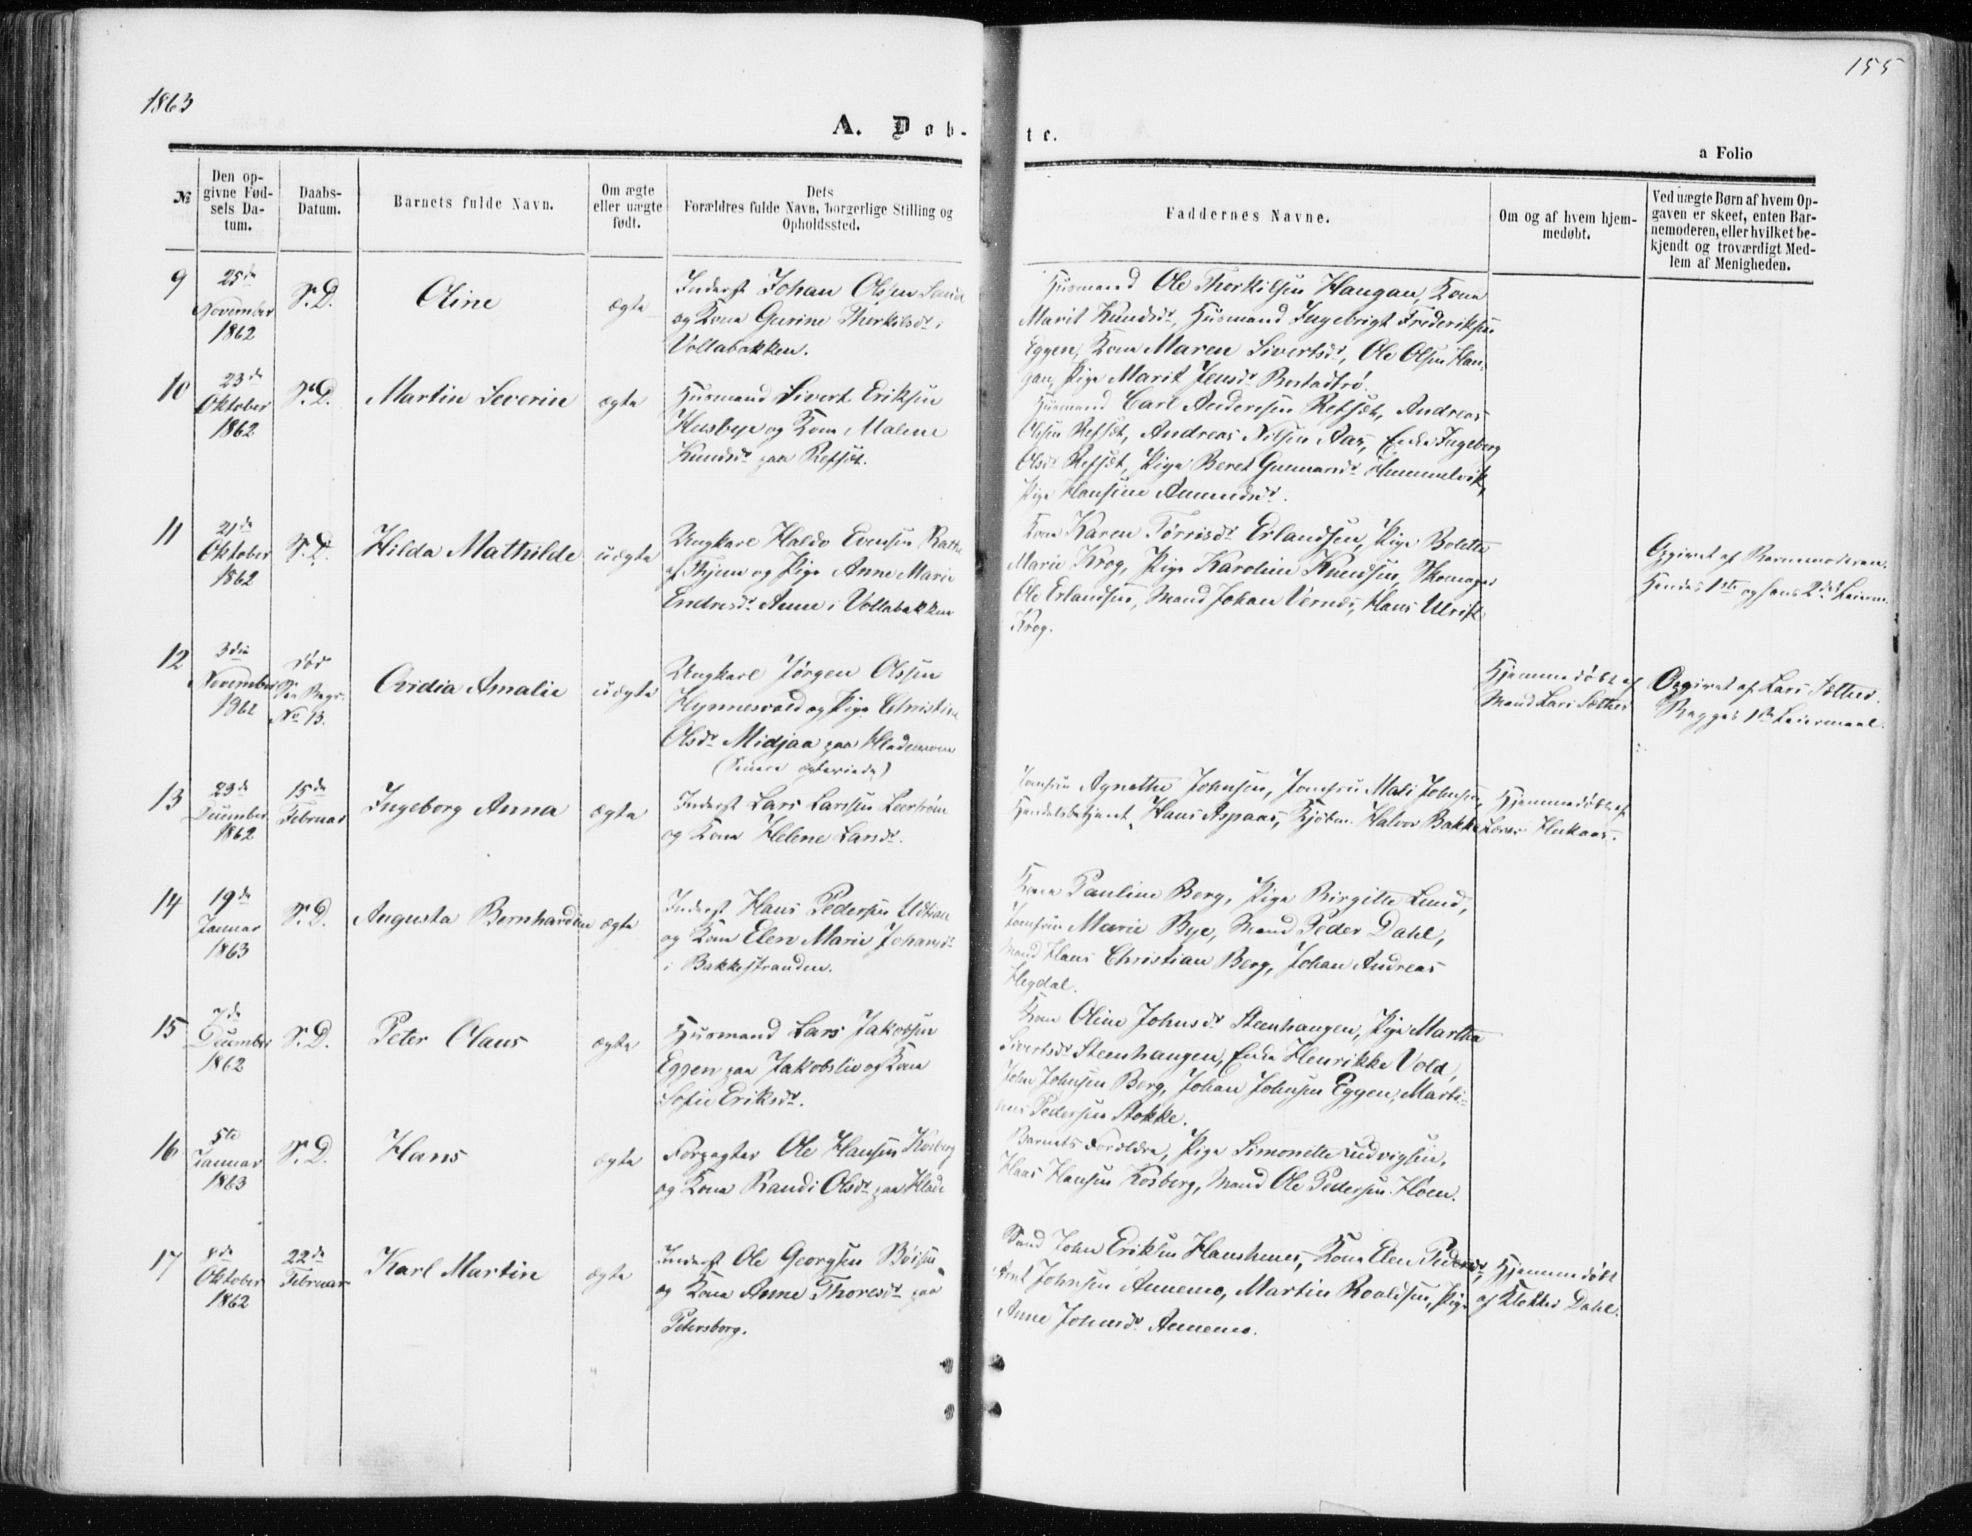 1863
155
A. Døb-
te.
a Folio
№
Den op-
givne Fød-
sels Da-
tum.
Daabs-
Datum.
Barnets fulde Navn.
Om ægte
eller uægte
født.
Dets
Forældres fulde Navn, borgerlige Stilling og
Opholdssted.
Faddernes Navne.
Om og af hvem hjem-
medøbt.
Ved uægte Børn af hvem Op-
gaven er skeet, enten Bar-
nemoderen, eller hvilket be-
kjendt og troværdigt Med-
lem af Menigheden.
9
25de
November
1862
S. D.
Oline
ægte
Inderst Johan Olsen
og Kone Gurine Thorkilsdr i
Vollabakken.
Husmand Ole Thorkilsen Haugan, Kone
Marit Knudsdr, Husmand Ingebrigt Frederiksen
Eggen, Kone Maren Sivertsdr, Ole Olsen Hau-
gan, Pige Marit Jensdr
10
23de
Oktober
1862
S. D.
Martin Severin
ægte
Husmand Sivert Eriksen
Husbye og Kone Malene
Knudsdr paa Refset.
Husmand Carl Andersen Refset, Andreas
Olsen Refset, Andreas Nilsen Aas, Enke Ingeborg
Olsdr Refset, Pige Beret Gunnarsdr Hummelvik,
Pige Hansine Amundsdr.
11
21de
Oktober
1862
S. D.
Hilda Mathilde
uægte
Ungkarl Haldo Evensen
og Pige Anne Marie
Endresdr Aune i Vollabakken
Kone Karen Tørrisdr Erlandsen, Pige Bolette
Marie Krog, Pige Karoline Knudsen, Skomager
Ole Erlandsen, Mand Johan Vernes, Hans Ulrik
Krog.
Opgivet af Barnemoderen.
Hendes 1ste og hans 2det Leierm.
12
3die
November
1862
død
No 13.
Ovidia Amalie
uægte
Ungkarl Jørgen Olsen
og Pige Christine
Olsdr Midjaa paa Hlademoen
(Senere ægteviede)
Hjemmedøbt af
Mand Lars Sæther
Opgivet af Lars Sæther.
Begges 1ste Leiermaal.
13
23de
December
1862
15de
Februar
Ingeborg Anna
ægte
Inderst Lars Larssen
og Kone Helene Larsdr.
Jomfru Agnette Johnsen, Jomfru Mali Johnsen,
Handelsbetjent Hans Aspaas, Kjøbm. Halvor Bakke
Hjemmedøbt af
Lærer
14
19de
Januar
1863
S. D.
Augusta Bernhardine
ægte
Inderst Hans Pedersen
og Kone Elen Marie Johansdr
i Bakkestranden.
Kone Pauline Berg, Pige Birgitte Lund,
Jomfru Marie Bye, Mand Peder Dahl,
Mand Hans Christian Berg, Johan Andreas
Hegdal.
15
7de
December
1862
S. D.
Peter Claus
ægte
Husmand Lars Jakobsen
Eggen paa Jakobsli og Kone
Sofie Eriksdr.
Kone Oline Johnsdr Steenhaugen, Pige Martha
Sivertsdr Steenhaugen, Enke Henrikke Vold,
John Johnsen Berg, Johan Johnsen Eggen, Marti-
nus Pedersen Stokke.
16
5te
Januar
1863
S. D.
Hans
ægte
Forpagter Ole Hansen Kosberg
og Kone Randi Olsdr paa Hlade
Barnets Forældre, Pige Simonette Ludvigsen,
Hans Hansen Kosberg, Mand Ole Pedersen Høen.
17
8de
Oktober
1862
22de
Februar
Karl Martin
ægte
Inderst Ole Georgsen
og Kone Anne Thoresdr paa
Petersborg.
Mand John Eriksen Kone Elen Pedersdr,
Johnsen Annemo, Martin Roaldsen, Pige
Anne Johnsdr Annemo.
Hjemmedøbt
af Klokker Dahl.